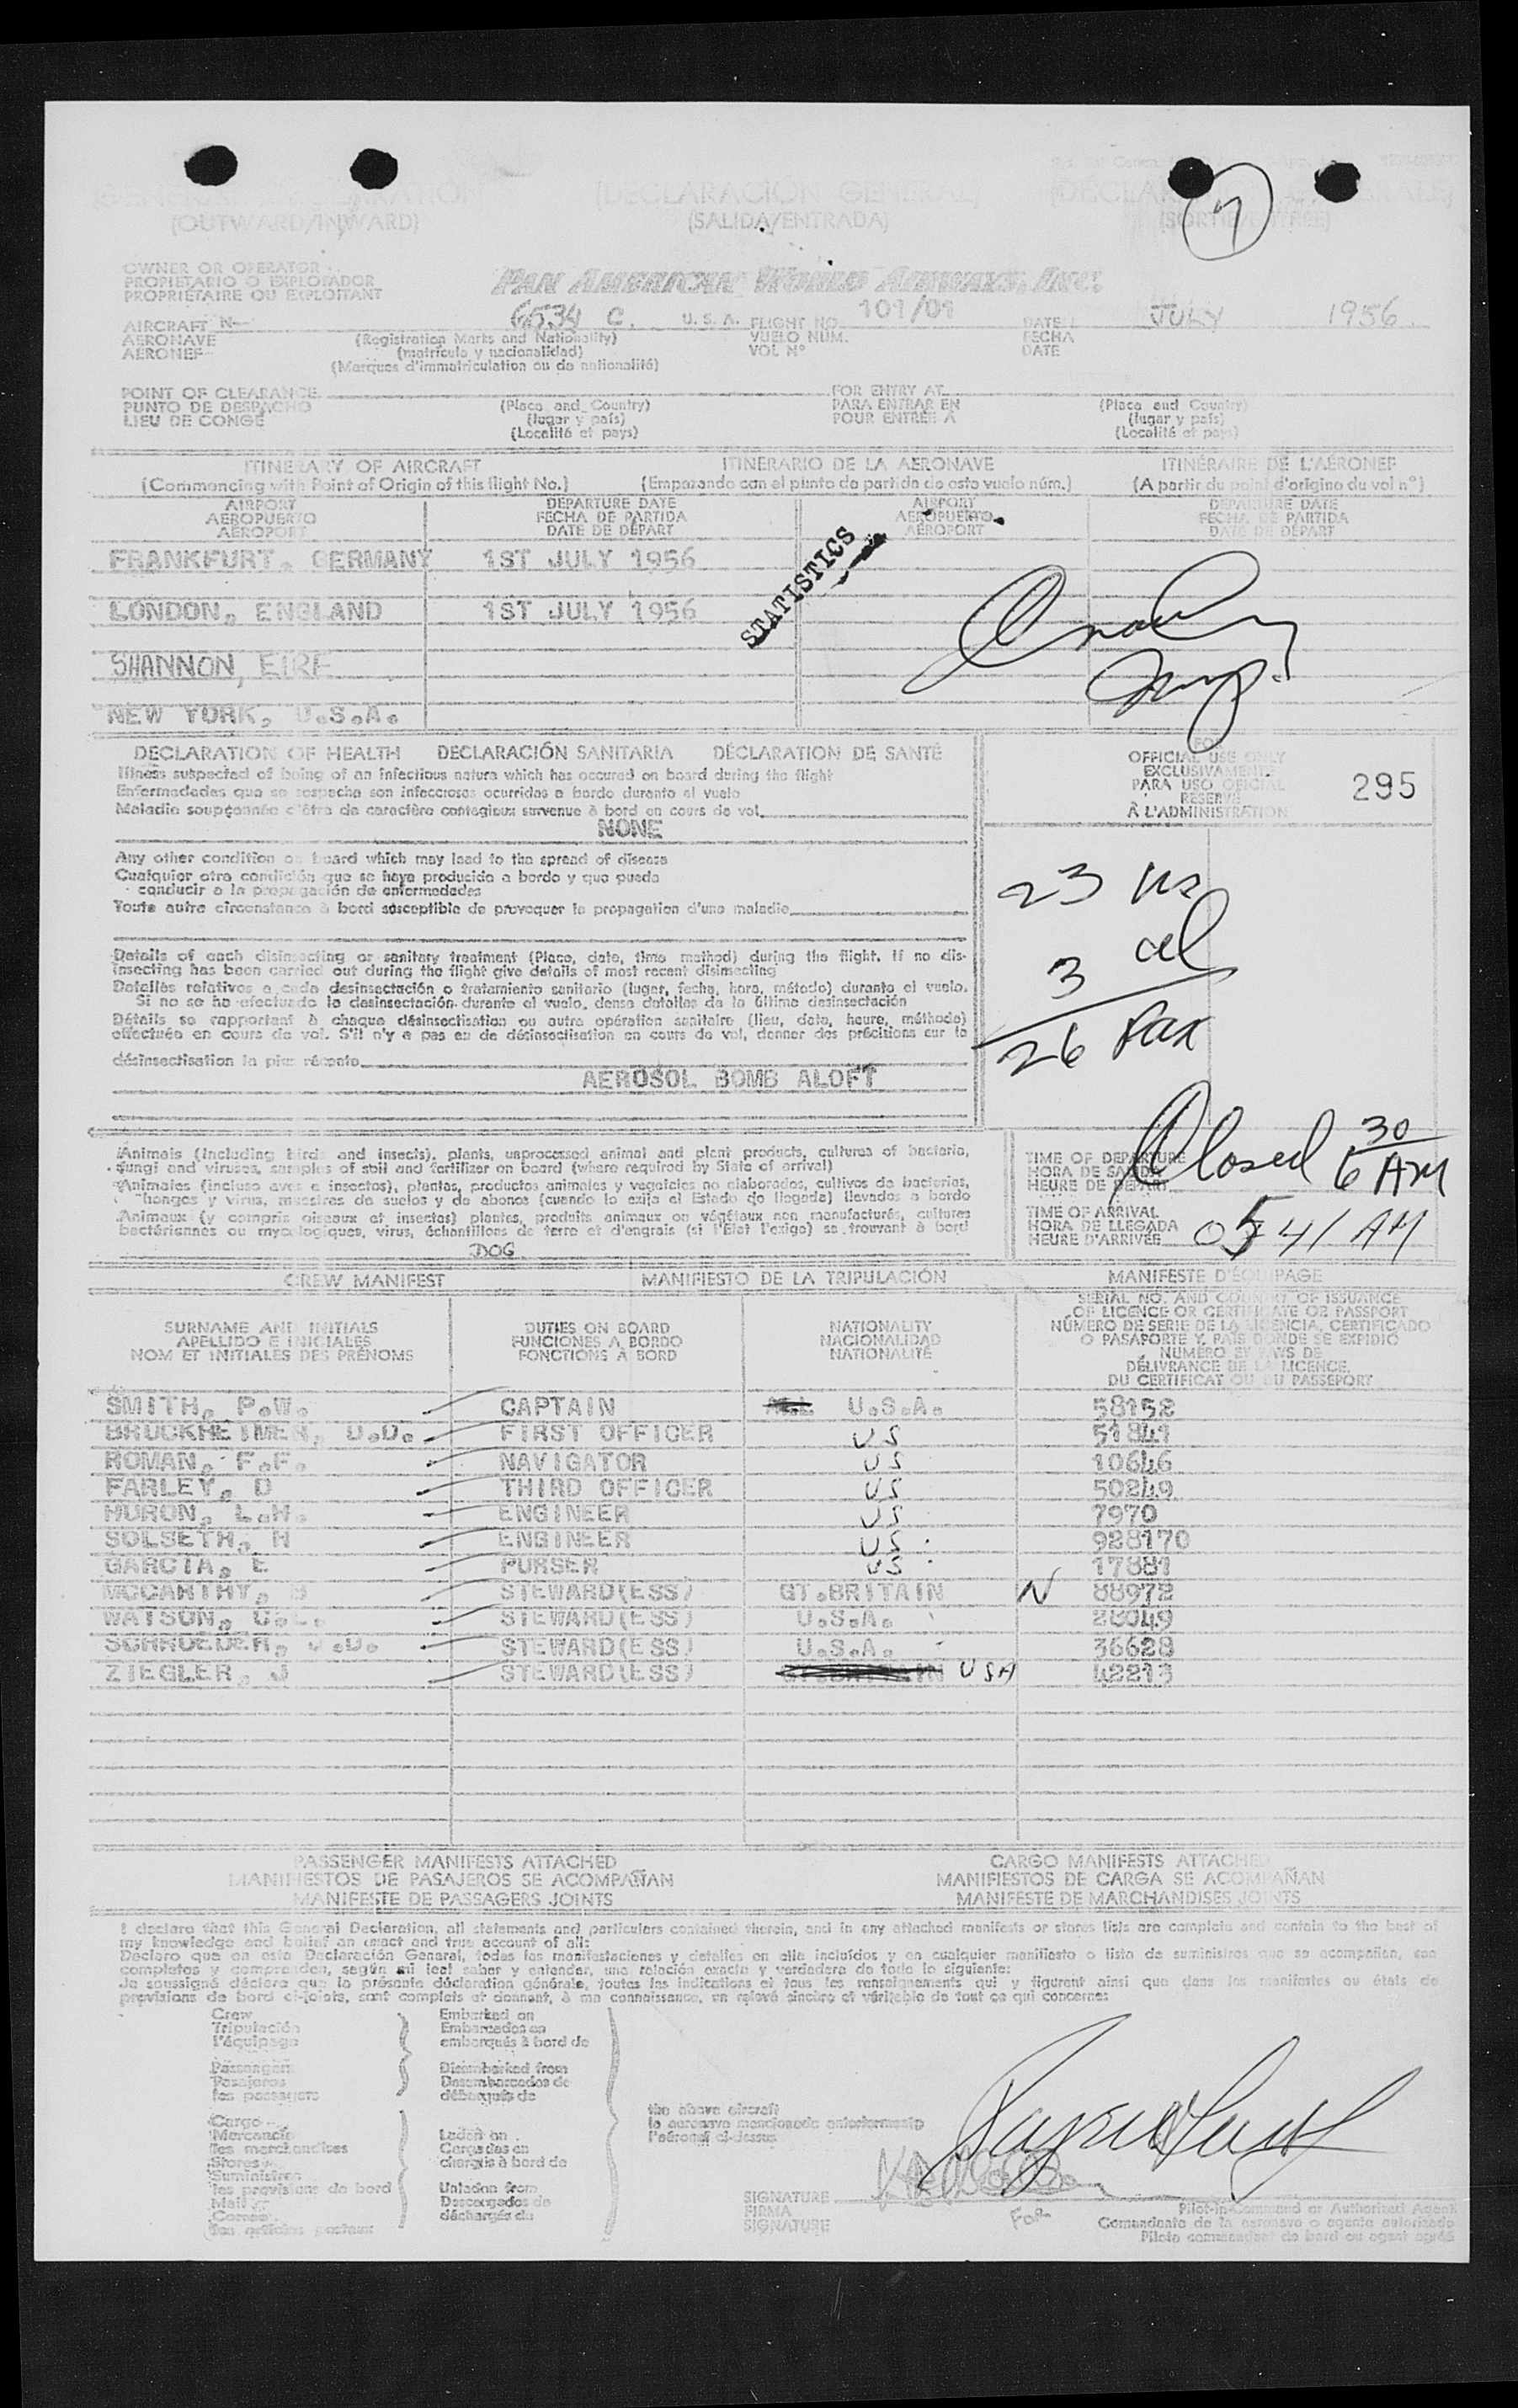 GENERAL DECLARATION (DECLARACIÓN GENERAL) (DÉCLARATION GÉNÉRALE)
(OUTWARD/INWARD) (SALIDA/ENTRADA) (SORTIE/ENTRÉE)
7
OWNER OR OPERATOR
PROPIETARIO O EXPLOTADOR
PROPRIÉTAIRE OU EXPLOITANT
PAN AMERICAN WORLD AIRWAYS, INC.
AIRCRAFT N- 6534 C. U. S. A. FLIGHT NO. 101/01 DATE JULY 1956.
AERONAVE (Registration Marks and Nationality) VUELO NÚM. FECHA
AÉRONEF (matrícula y nacionalidad) VOL Nº DATE
(Marques d'immatriculation ou de nationalité)
POINT OF CLEARANCE FOR ENTRY AT
PUNTO DE DESPACHO (Place and Country) PARA ENTRAR EN (Place and Country)
LIEU DE CONGÉ (lugar y país) POUR ENTRÉE À (lugar y país)
(Localité et pays) (Localité et pays)
ITINERARY OF AIRCRAFT ITINERARIO DE LA AERONAVE ITINÉRAIRE DE L'AÉRONEF
(Commencing with Point of Origin of this flight No.) (Empezando con el punto de partida de este vuelo núm.) (A partir du point d'origine du vol nº)
AIRPORT DEPARTURE DATE AIRPORT DEPARTURE DATE
AEROPUERTO FECHA DE PARTIDA AEROPUERTO FECHA DE PARTIDA
AÉROPORT DATE DE DÉPART AÉROPORT DATE DE DÉPART
FRANKFURT, GERMANY 1ST JULY 1956
STATISTICS
LONDON, ENGLAND 1ST JULY 1956
SHANNON, EIRE
NEW YORK, U.S.A.
DECLARATION OF HEALTH DECLARACIÓN SANITARIA DÉCLARATION DE SANTÉ
Illness suspected of being of an infectious nature which has occured on board during the flight
Enfermedades que se sospecha son infecciosas ocurridas a bordo durante el vuelo
Maladie soupçonnée d'être de caractère contagieux survenue à bord en cours de vol
NONE
FOR
OFFICIAL USE ONLY
EXCLUSIVAMENTE
PARA USO OFICIAL
RESERVÉ
À L'ADMINISTRATION
295
Any other condition on board which may lead to the spread of disease
Cualquier otra condición que se haya producido a bordo y que pueda
conducir a la propagación de enfermedades
Toute autre circonstance à bord susceptible de provoquer la propagation d'une maladie
23 us
3 al
26 Pax
Details of each disinsecting or sanitary treatment (Place, date, time method) during the flight. If no dis-
insecting has been carried out during the flight give details of most recent disinsecting
Detalles relativos a cada desinsectación o tratamiento sanitario (lugar, fecha, hora, método) durante el vuelo.
Si no se ha efectuado la desinsectación durante el vuelo, dense detalles de la última desinsectación
Détails se rapportant à chaque désinsectisation ou autre opération sanitaire (lieu, date, heure, méthode)
effectuée en cours de vol. S'il n'y a pas eu de désinsectisation en cours de vol, donner des précisions sur la
désinsectisation la plus récente
AEROSOL BOMB ALOFT
Animals (including birds and insects), plants, unprocessed animal and plant products, cultures of bacteria,
fungi and viruses, samples of soil and fertilizer on board (where required by State of arrival)
Animales (incluso aves e insectos), plantas, productos animales y vegetales no elaborados, cultivos de bacterias,
hongos y virus, muestras de suelos y de abonos (cuando lo exija el Estado de llegada) llevados a bordo
Animaux (y compris oiseaux et insectes) plantes, produits animaux ou végétaux non manufacturés, cultures
bactériennes ou mycologiques, virus, échantillons de terre et d'engrais (si l'État l'exige) se trouvant à bord
DOG
TIME OF DEPARTURE
HORA DE SALIDA
HEURE DE DÉPART
Closed 6 30 AM
TIME OF ARRIVAL
HORA DE LLEGADA
HEURE D'ARRIVÉE
0541 AM
CREW MANIFEST MANIFIESTO DE LA TRIPULACIÓN MANIFESTE D'ÉQUIPAGE
SURNAME AND INITIALS
APELLIDO E INICIALES
NOM ET INITIALES DES PRÉNOMS
DUTIES ON BOARD
FUNCIONES A BORDO
FONCTIONS À BORD
NATIONALITY
NACIONALIDAD
NATIONALITÉ
SERIAL NO. AND COUNTRY OF ISSUANCE
OF LICENCE OR CERTIFICATE OR PASSPORT
NÚMERO DE SERIE DE LA LICENCIA, CERTIFICADO
O PASAPORTE Y PAÍS DONDE SE EXPIDIÓ
NUMÉRO ET PAYS DE
DÉLIVRANCE DE LA LICENCE,
DU CERTIFICAT OU DU PASSEPORT
SMITH, P.W. CAPTAIN U.S.A. 58152
BRUCKHEIMER, D.D. FIRST OFFICER US 51841
ROMAN, F.F. NAVIGATOR US 10646
FARLEY, D THIRD OFFICER US 50249
MURON, L.H. ENGINEER US 7970
SOLSETH, H ENGINEER US 928170
GARCIA, E PURSER US 17881
MCCARTHY, STEWARD(ESS) GT.BRITAIN N 88972
WATSON, STEWARD(ESS) U.S.A. 28049
SCHROEDER, J.D. STEWARD(ESS) U.S.A. 36628
ZIEGLER, J STEWARD(ESS) USA 42213
PASSENGER MANIFESTS ATTACHED CARGO MANIFESTS ATTACHED
MANIFIESTOS DE PASAJEROS SE ACOMPAÑAN MANIFIESTOS DE CARGA SE ACOMPAÑAN
MANIFESTE DE PASSAGERS JOINTS MANIFESTE DE MARCHANDISES JOINTS
I declare that this General Declaration, all statements and particulars contained therein, and in any attached manifests or stores lists are complete and contain to the best of
my knowledge and belief an exact and true account of all:
Declaro que en esta Declaración General, todas las manifestaciones y detalles en ella incluídos y en cualquier manifiesto o lista de suministros que se acompañen, son
completos y comprenden, según mi leal saber y entender, una relación exacta y verdadera de todo lo siguiente:
Je soussigné déclare que la présente déclaration générale, toutes les indications et tous les renseignements qui y figurent ainsi que dans les manifestes ou états de
provisions de bord ci-joints, sont complets et donnent, à ma connaissance, un relevé sincère et véritable de tout ce qui concerne:
Crew Embarked on
Tripulación Embarcados en
l'équipage embarqués à bord de
Passengers Disembarked from
Pasajeros Desembarcados de
les passagers débarqués de
the above aircraft
la aeronave mencionada anteriormente
l'aéronef ci-dessus
Cargo
Mercancía Laden on
les marchandises Cargadas en
Stores chargés à bord de
Suministros
les provisions de bord Unladen from
Mail Descargados de
Correo déchargés de
les articles postaux
SIGNATURE
FIRMA
SIGNATURE
For
Pilot-in-Command or Authorized Agent
Comandante de la aeronave o agente autorizado
Pilote commandant de bord ou agent agréé